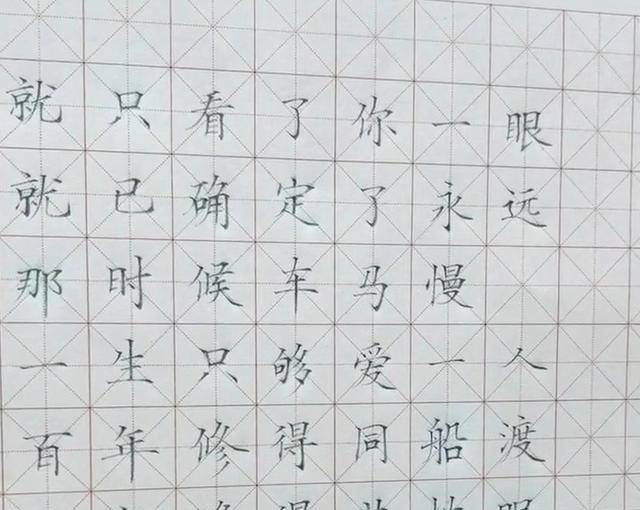 就只看了你一眼
就已确定了永远
那时候车马慢
一生只够爱一人
百年修得同船渡